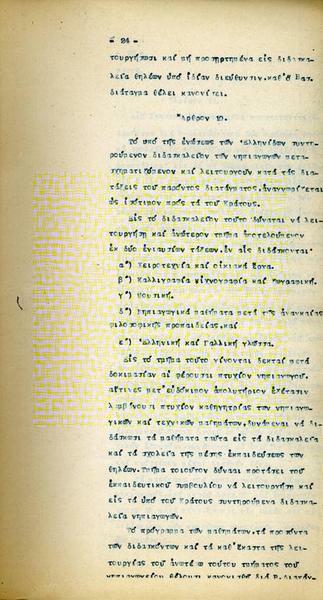 - 24 -
τουργήσωσι καί μή προσηρτημένα εἰς διδασκα-
λεῖα θηλέων ὑπό ἰδίαν διεύθυνσιν.καθ'ἅ Βασ.
διάταγμα θέλει κανονίσει.
Ἄρθρον 19.
Τό ὑπό τῆς ἑνώσεως τῶν Ἑλληνίδων συντη-
ρούμενον διδασκαλεῖον τῶν νηπιαγωγῶν μετα-
σχηματιζόμενον καί λειτουργοῦν κατά τάς δια-
τάξεις τοῦ παρόντος διατάγματος.ἀναγνωρίζεται
ὡς ἰσότιμον πρός τά τοῦ Κράτους.
Εἰς τό διδασκαλεῖον τοῦτο δύναται νά λει-
τουργήσῃ καί ἀνώτερον τμῆμα ἀποτελούμενον
ἐκ δύο ἐνιαυσίων τάξεων.ἐν αἷς διδάσκονται
α') Χειροτεχνία καί οἰκιακά ἔργα.
β') Καλλιγραφία ἰχνογραφία καί ζωγραφική.
γ') Μουσική.
δ') Νηπιαγωγικά μαθήματα μετά τῆς ἀναγκαίας
φιλοσοφικῆς προπαιδείας.καί
ε') Ἑλληνική καί Γαλλική γλῶσσα.
Εἰς τό τμῆμα τοῦτο γίνονται δεκταί μετά
δοκιμασίαν αἱ φέρουσαι πτυχίον νηπιαγωγοῦ.
αἵτινες μετ'εὐδόκιμον ἀπολυτήριον ἐξέτασιν
λαμβάνουσι πτυχίον καθηγητρίας τῶν νηπιαγω-
γικῶν καί τεχνικῶν μαθημάτων.δυνάμεναι νά δι-
δάσκωσι τά μαθήματα ταῦτα εἰς τά διδασκαλεῖα
καί τά σχολεῖα τῆς μέσης ἐκπαιδεύσεως τῶν
θηλέων.Τμῆμα τοιοῦτον δύναται προτάσει τοῦ
ἐκπαιδευτικοῦ συμβουλίου νά λειτουργήσῃ καί
εἰς τά ὑπό τοῦ Κράτους συντηρούμενα διδασκα-
λεῖα νηπιαγωγῶν.
Τό πρόγραμμα τῶν μαθημάτων.τά προσόντα
τῶν διδασκόντων καί τά καθ'ἕκαστα τῆς λει-
τουργίας τοῦ ἀνωτέρω τούτου τμήματος τοῦ
νηπιαγωγείου θέλουσι κανονισθῇ διά Β.Διατάγ-